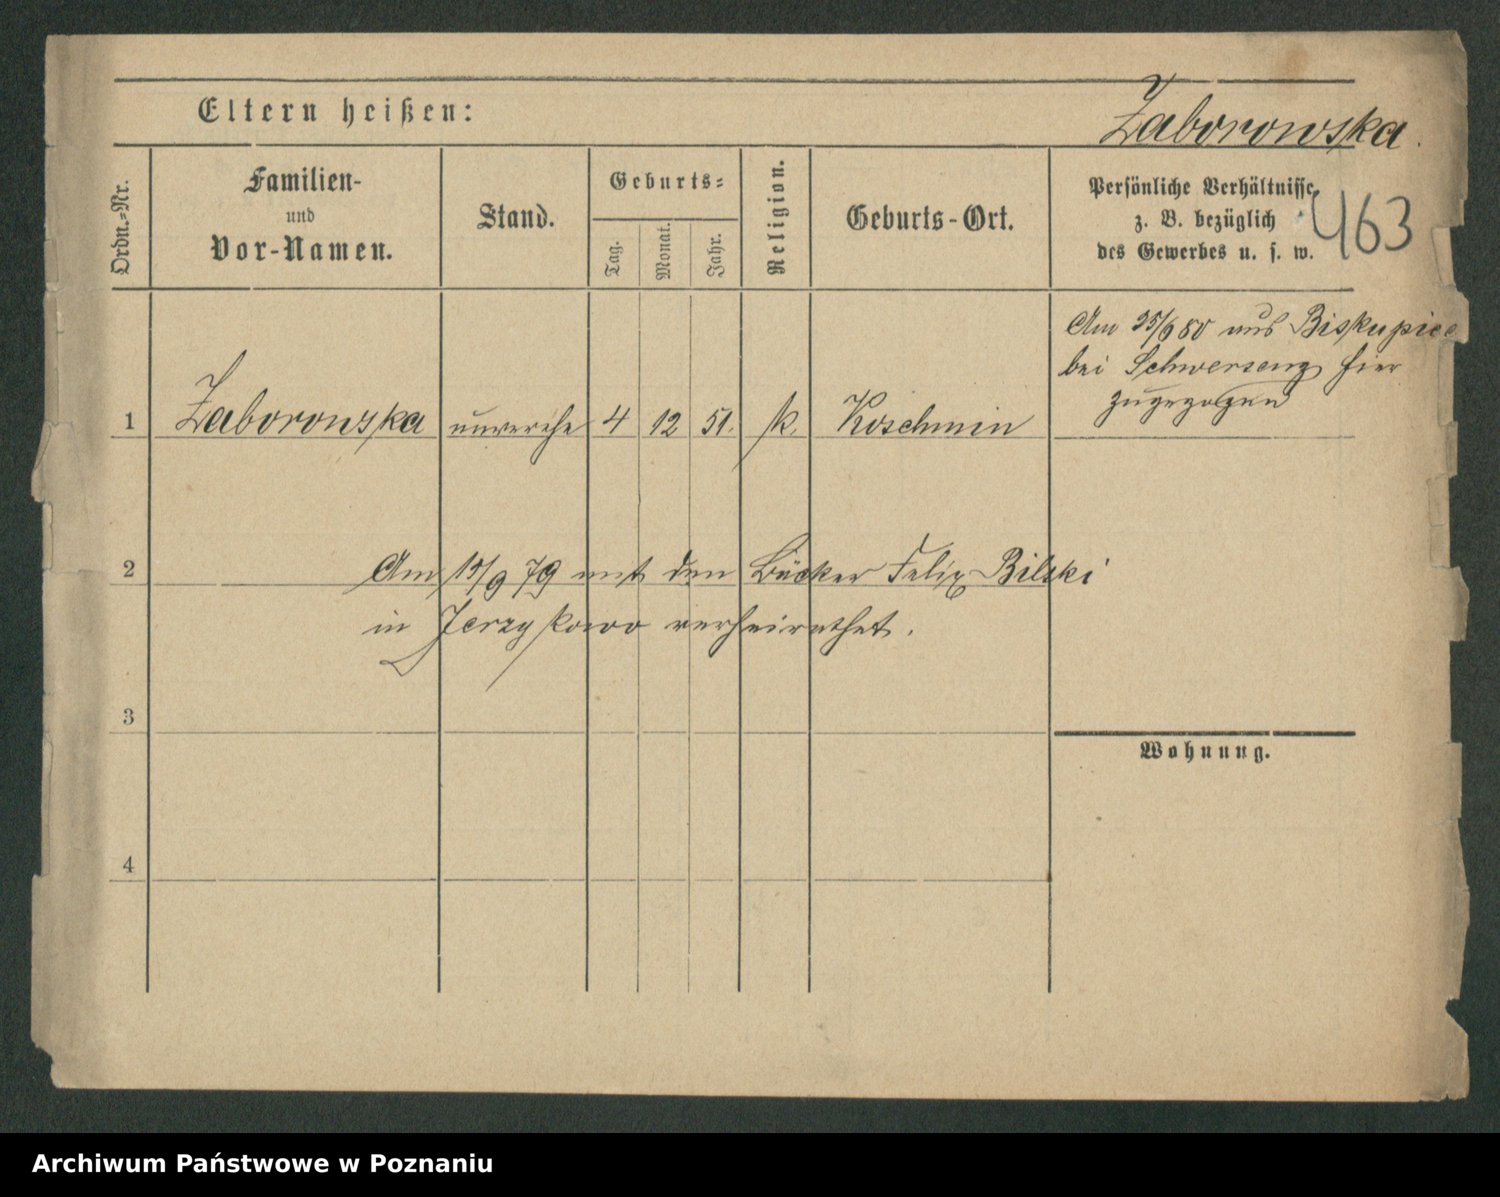 Eltern heißen:
Zaborowska.
Ordn.-Nr.
Familien-
und
Vor-Namen.
Stand.
Geburts-
Tag.
Monat.
Jahr.
Religion.
Geburts-Ort.
Persönliche Verhältnisse,
z. B. bezüglich
des Gewerbes u. s. w.
463
Am /9 80 aus Biskupice
bei Schwersenz hier
zugezogen
1 Zaborowska unverehe 4 12 51. k. Koschmin
2 Am 15/9 79 mit den Bäcker Felix Bilski
in Jerzykowo verheirathet.
3
Wohnung.
4
Archiwum Państwowe w Poznaniu